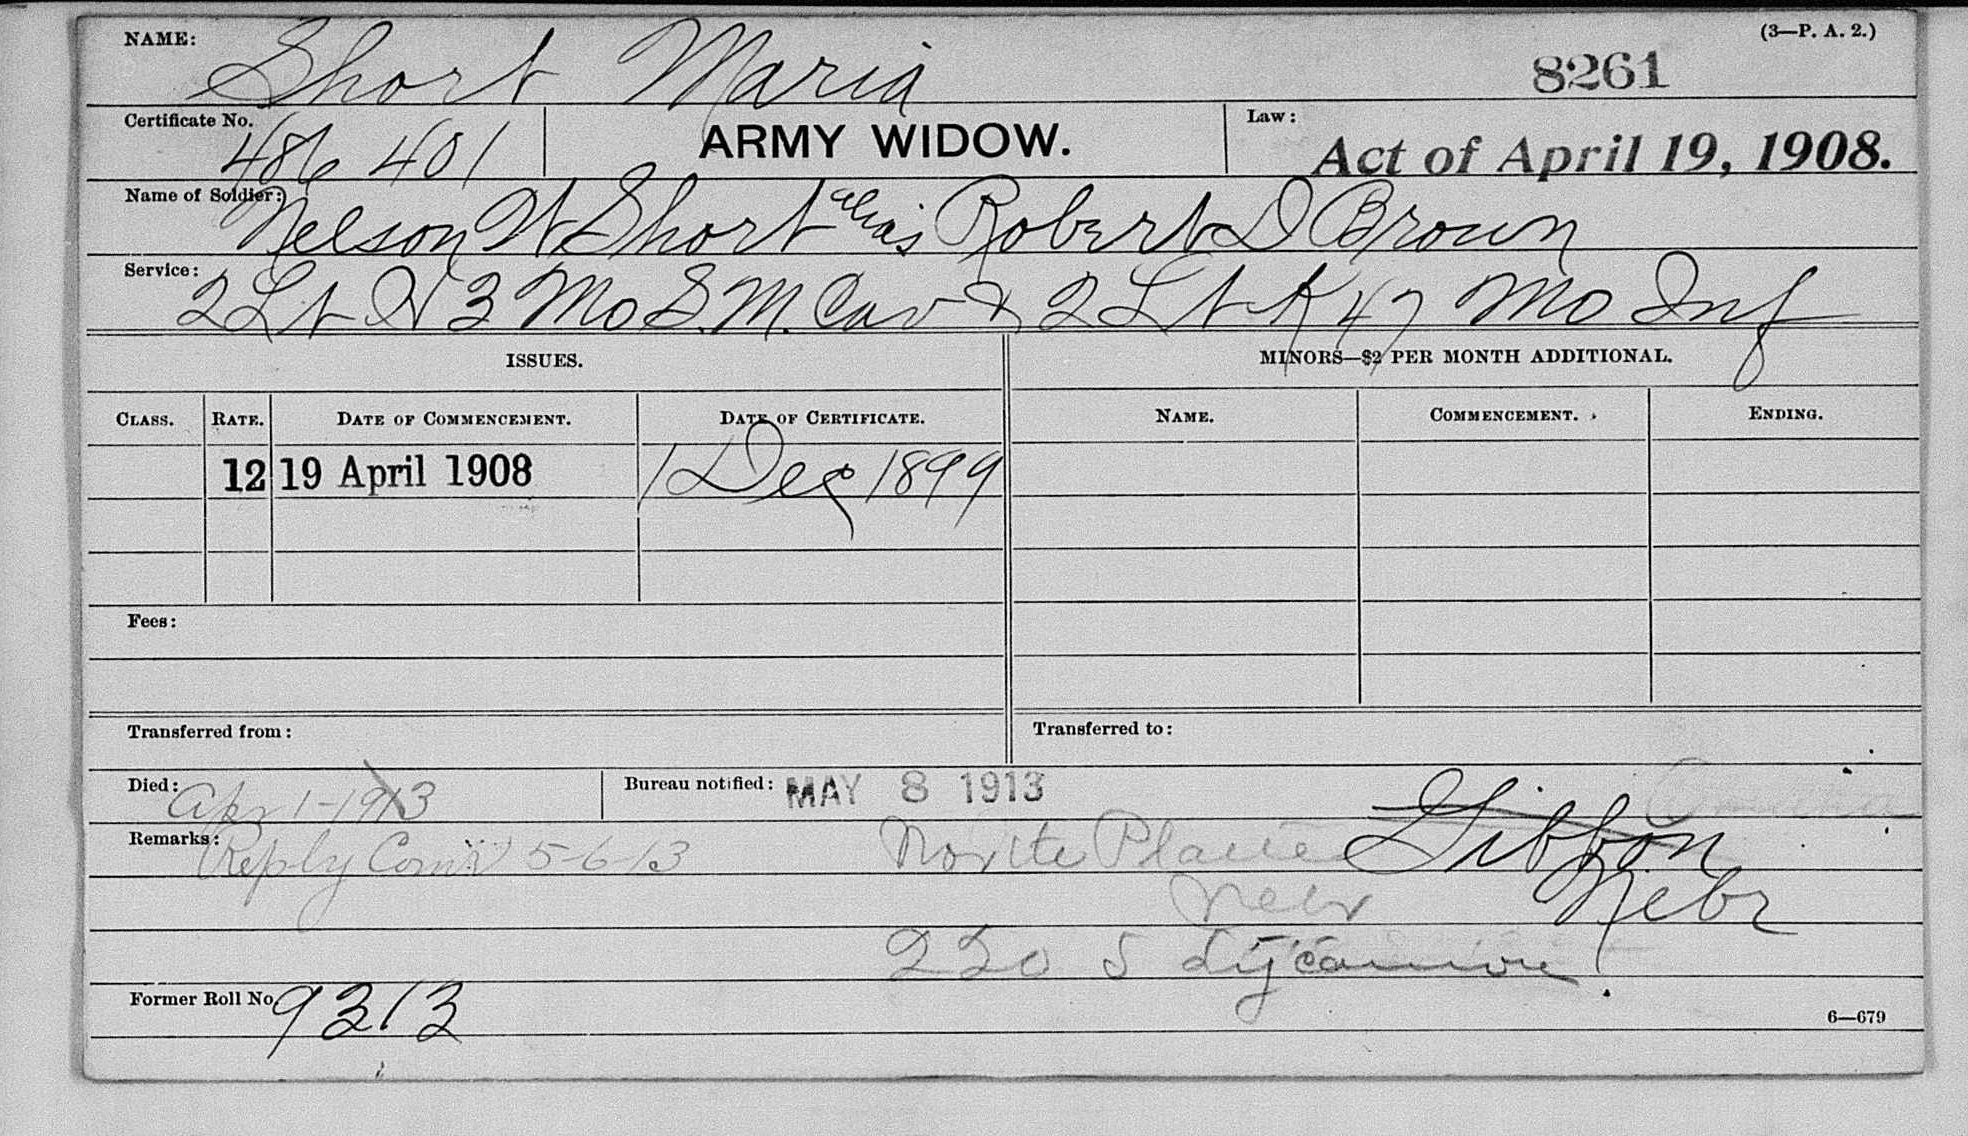 (3—P. A. 2.)
NAME: Short Maria 8261
Certificate No. 486 401 ARMY WIDOW. Law: Act of April 19, 1908.
Name of Soldier: Nelson W Short alias Robert D Brown
Service: 2 Lt H 3 Mo S.M. Cav & 2 Lt K 47 Mo Inf
ISSUES. MINORS—$2 PER MONTH ADDITIONAL.
CLASS. RATE. DATE OF COMMENCEMENT. DATE OF CERTIFICATE. NAME. COMMENCEMENT. ENDING.
12 19 April 1908 1 Dec 1899
Fees:
Transferred from: Transferred to:
Died: Apr 1-1913 Bureau notified: MAY 8 1913
Remarks: Reply 5-6-13 North Platte Gibbon
Nebr Nebr
220 S Sycamore
Former Roll No. 9313
6—679